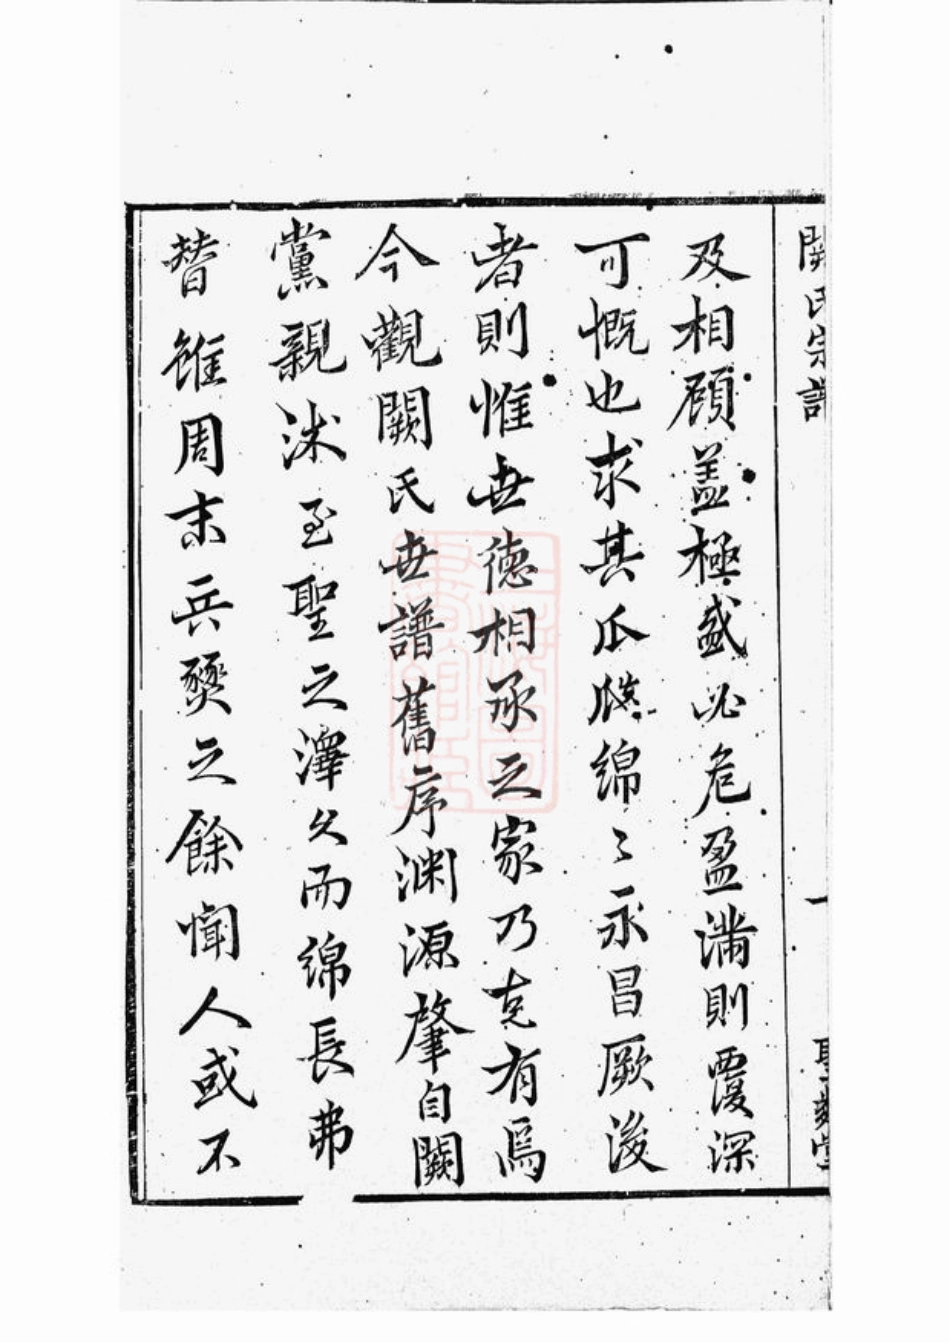 闕氏宗譜
一
及相顧盖極盛必危盈滿則覆深
可慨也求其瓜瓞綿〻永昌厥後
者則惟世德相承之家乃克有焉
今觀闕氏世譜舊序渊源肇自闕
黨親沭至聖之澤久而綿長弗
替雖周末兵燹之餘聞人或不